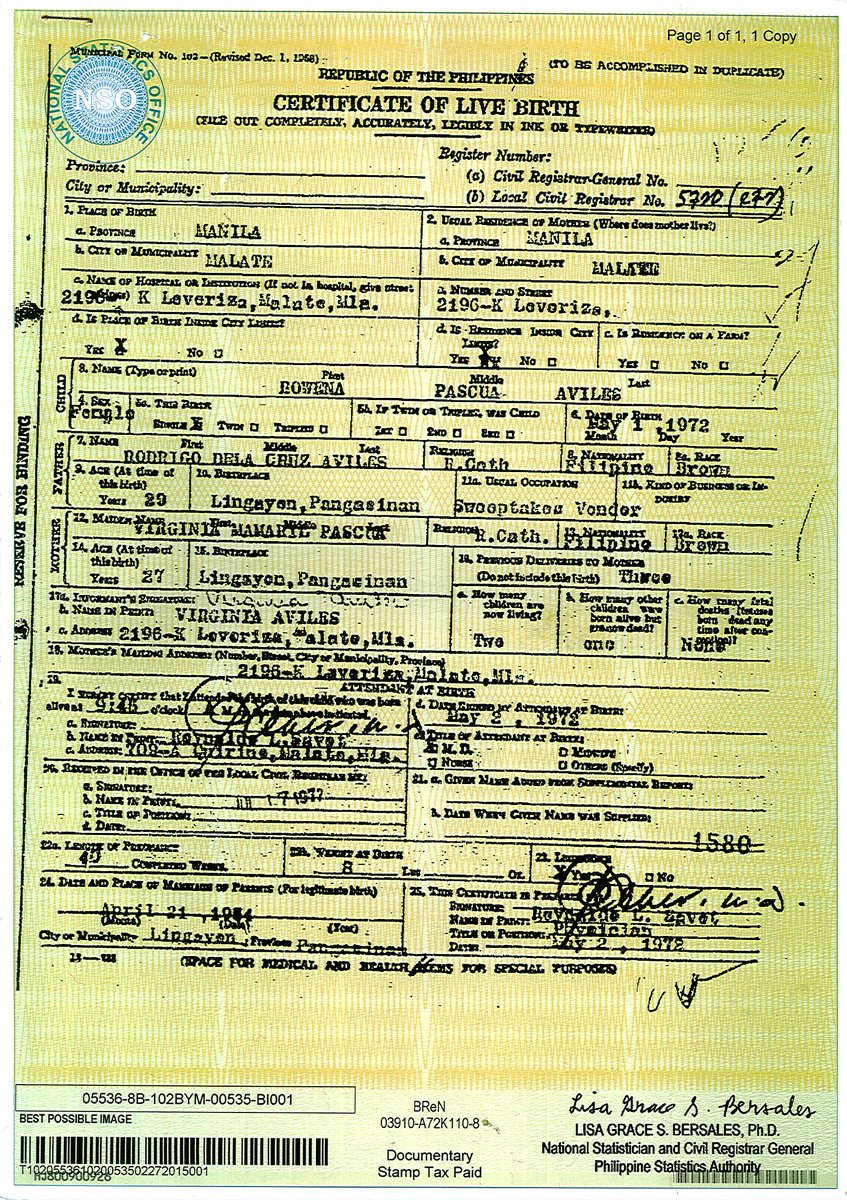 Page 1 of 1, 1 Copy
NATIONAL STATISTICS OFFICE
NSO
MUNICIPAL FORM No. 102—(Revised Dec. 1, 1958)
(TO BE ACCOMPLISHED IN DUPLICATE)
REPUBLIC OF THE PHILIPPINES
CERTIFICATE OF LIVE BIRTH
(FILL OUT COMPLETELY, ACCURATELY, LEGIBLY IN INK OR TYPEWRITER)
Register Number:
Province:
(a) Civil Registrar-General No.
City or Municipality:
(b) Local Civil Registrar No. 5320 (277)
1. PLACE OF BIRTH
2. USUAL RESIDENCE OF MOTHER (Where does mother live?)
a. PROVINCE MANILA
a. PROVINCE MANILA
b. CITY OR MUNICIPALITY MALATE
b. CITY OF MUNICIPALITY MALATE
c. NAME OF HOSPITAL OR INSTITUTION (If not in hospital, give street
2196 K Leveriza, Malate, Mla.
c. NUMBER AND STREET
2196-K Leveriza,
d. IS PLACE OF BIRTH INSIDE CITY LIMITS?
d. IS RESIDENCE INSIDE CITY LIMITS?
e. IS RESIDENCE ON A FARM?
YES X NO
YES NO
YES NO
RESERVE FOR BINDING
CHILD
3. NAME (Type or print) First Middle Last
ROWENA PASCUA AVILES
4. SEX Female
5a. THIS BIRTH
SINGLE X TWIN TRIPLET
5b. IF TWIN OR TRIPLET, WAS CHILD
1ST 2ND 3RD
6. DATE OF BIRTH
May 1, 1972
Month Day Year
FATHER
7. NAME First Middle Last
RODRIGO DELA CRUZ AVILES
RELIGION R.Cath
8. NATIONALITY Filipino
8a. RACE Brown
9. AGE (At time of this birth)
Years 29
10. BIRTHPLACE
Lingayen, Pangasinan
11a. USUAL OCCUPATION
Sweeptakes Vendor
11b. KIND OF BUSINESS OR INDUSTRY
MOTHER
12. MAIDEN NAME First Middle Last
VIRGINIA MAMARIL PASCUA
RELIGION R.Cath.
13. NATIONALITY Filipino
13a. RACE Brown
14. AGE (At time of this birth)
Years 27
15. BIRTHPLACE
Lingayen, Pangasinan
16. PREVIOUS DELIVERIES TO MOTHER
(Do not include this birth) Three
a. How many children are now living?
Two
b. How many other children were born alive but are now dead?
one
c. How many fetal deaths (fetuses born dead any time after conception)?
None
17a. INFORMANT'S SIGNATURE: Virginia Aviles
b. NAME IN PRINT: VIRGINIA AVILES
c. ADDRESS 2196-K Leveriza, Malate, Mla.
18. MOTHER'S MAILING ADDRESS (Number, Street, City or Municipality, Province)
2196-K Leveriza, Malate, Mla.
19. ATTENDANT AT BIRTH
I HEREBY CERTIFY that I attended the birth of this child who was born
alive at 9:45 o'clock M. on the date above indicated.
a. SIGNATURE:
b. NAME IN PRINT:
c. ADDRESS: 709-A Quirino, Malate, Mla.
d. DATE SIGNED BY ATTENDANT AT BIRTH:
May 2, 1972
e. TITLE OF ATTENDANT AT BIRTH:
M.D. MIDWIFE
NURSE OTHERS (Specify)
20. RECEIVED IN THE OFFICE OF THE LOCAL CIVIL REGISTRAR BY:
a. SIGNATURE:
b. NAME IN PRINT:
c. TITLE OF POSITION:
d. DATE:
21. a. GIVEN NAME ADDED FROM SUPPLEMENTAL REPORT:
b. DATE WHEN GIVEN NAME WAS SUPPLIED:
1580
22a. LENGTH OF PREGNANCY
40 COMPLETED WEEKS.
22b. WEIGHT AT BIRTH
8 LBS OZ.
23. LEGITIMATE
Yes No
24. DATE AND PLACE OF MARRIAGE OF PARENTS (For legitimate birth)
April 21
(Month) (Day) (Year)
City or Municipality Lingayen, Province Pangasinan
25. THIS CERTIFICATE IS PREPARED BY:
SIGNATURE:
NAME IN PRINT:
TITLE OR POSITION: Physician
DATE: May 2, 1972
(SPACE FOR MEDICAL AND HEALTH ITEMS FOR SPECIAL PURPOSES)
05536-8B-102BYM-00535-BI001
BEST POSSIBLE IMAGE
T102055361020053502272015001
BReN
03910-A72K110-8
Documentary
Stamp Tax Paid
Lisa Grace S. Bersales
LISA GRACE S. BERSALES, Ph.D.
National Statistician and Civil Registrar General
Philippine Statistics Authority